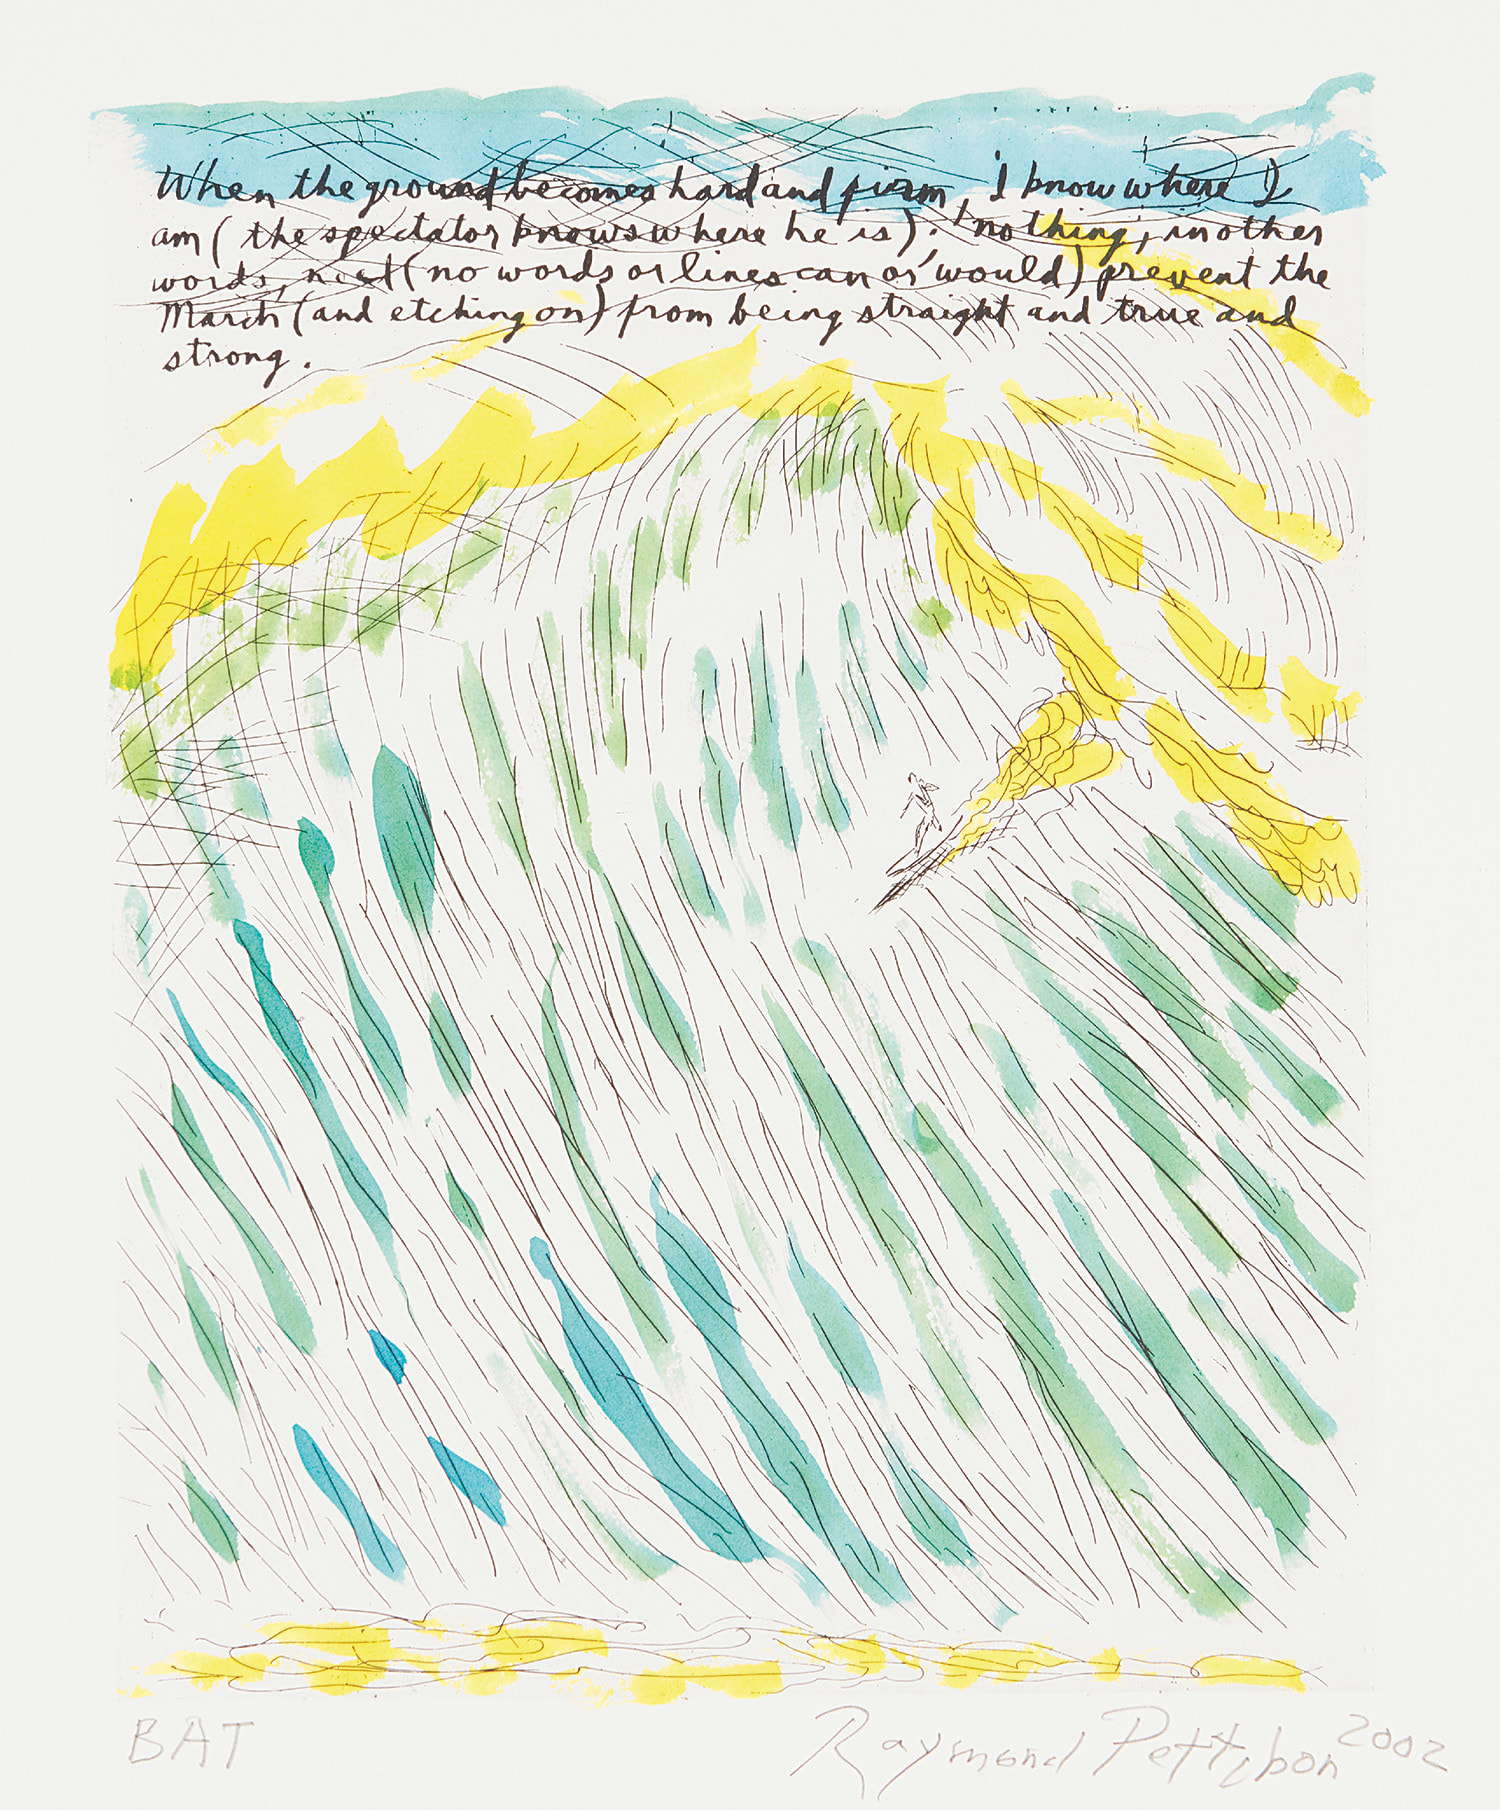 When the ground becomes hard and firm, 'I know where I
am (the spectator knows where he is).' nothing, in other
words, (no words or lines can or' would) prevent the
March (and etching on) from being straight and true and
strong.
BAT
Raymond Pettibon 2002